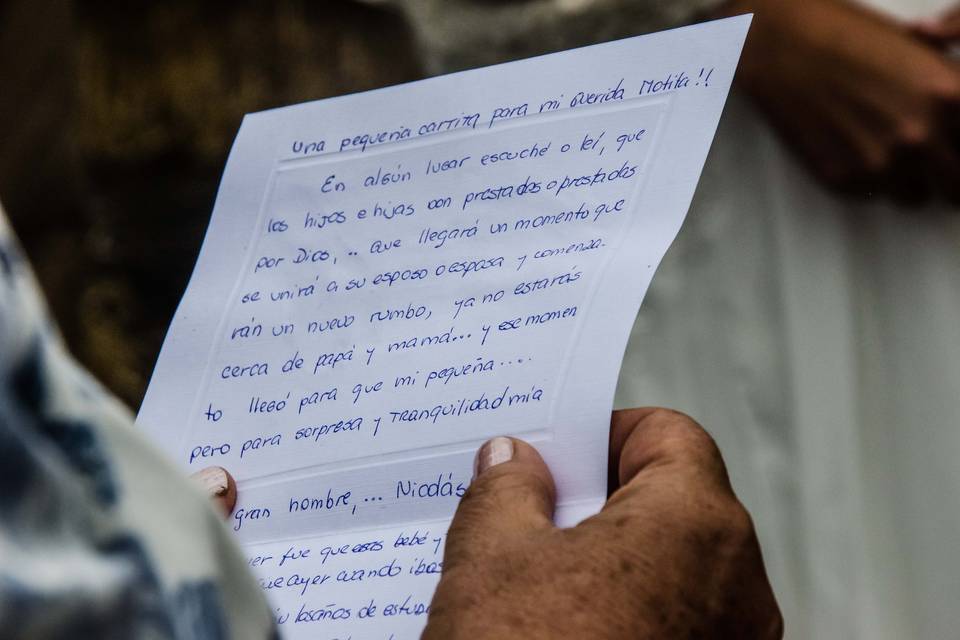 Una pequeña carrita para mi querida Motita!!
En algún lugar escuché o leí, que
los hijos e hijas son prestados o prestadas
por Dios, .. que llegará un momento que
se unirá a su esposo o esposa y comenza-
rán un nuevo rumbo, ya no estarás
cerca de papá y mamá... y ese momen
to llegó para que mi pequeña....
pero para sorpresa y tranquilidad mía
gran hombre, ... Nicolás
fue que eras bebé y
ayer cuando ibas
los años de